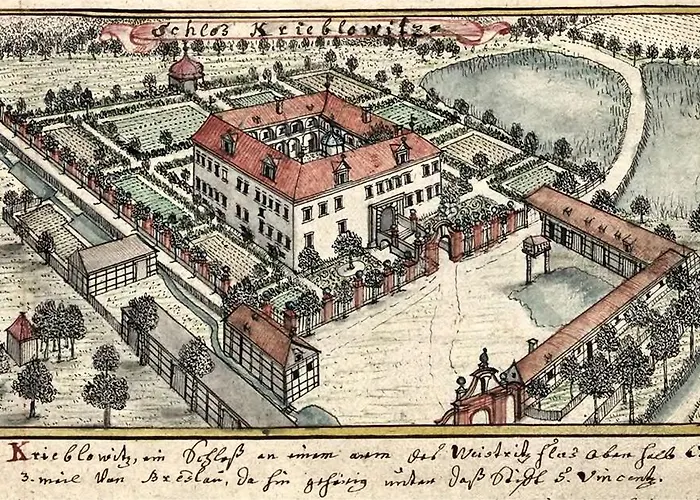 Schloß Krieblowitz
Krieblowitz, ein Schloß an einem arm des Weistritz flus oberhalb
3. meil von Breslau, da hin gehörig unter daß Stifft S. Vincenz.